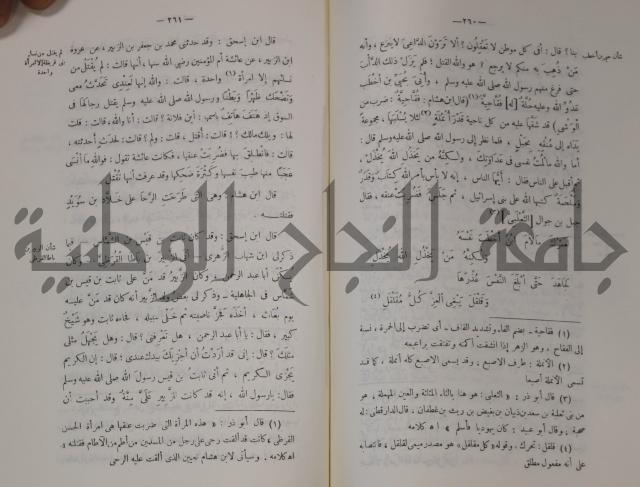 — ٢٦٠ —
شأن حيي بن أخطب
بنا ؟ قال : أفى كل موطن لا تعقلون ؟ ألا ترون الداعى لا ينزع ، وأنه
من ذهب به منكم لا يرجع ؟ هو والله القتل ! فلم يزل ذلك الدأب
حتى فرغ منهم رسول الله صلى الله عليه وسلم ، وأتى بحيى بن أخطب
عدو الله وعليه حلة [له] فقاحية (١) (قال ابن هشام : فقاحية : ضرب من
الوشى) قد شقها عليه من كل ناحية قدر أنملة (٢) لئلا يسلبها ، مجموعة
يداه إلى عنقه بحبل ، فلما نظر إلى رسول الله صلى الله عليه وسلم قال :
أما والله ما لمت نفسى فى عداوتك ، ولكنه من يخذل الله يخذل ،
ثم أقبل على الناس فقال : أيها الناس ، إنه لا بأس بأمر الله كتاب وقدر
وملحمة كتبها الله على بنى إسرائيل ، ثم جلس فضربت عنقه ، فقال
جبل بن جوال [الثعلبى] (٣) :
لعمرك ما لام ابن أخطب نفسه
ولكنه من يخذل الله يخذل
لجاهد حتى أبلغ النفس عذرها
وقلقل يبغى العز كل مقلقل (٤)
(١) فقاحية - بضم الفاء وتشديد القاف - أى تضرب إلى الحمرة ، نسبة
إلى الفقاح ، وهو الزهر إذا انشقت أكمته وتفتقت براعيمه
(٢) الأنملة : طرف الاصبع ، وقد يسمى الاصبع كله أنملة ، كما قد
تسمى الأنملة أصبعا
(٣) قال أبو ذر : « الثعلبى : هو هنا بالثاء المثلثة والعين المهملة ، هو
من بنى ثعلبة بن سعد بن ذبيان بن بغيض بن ريث بن غطفان ، قال الدارقطنى : له
صحبة ، وقال أبو عبيد : كان يهوديا فأسلم » اه كلامه
(٤) قلقل : تحرك . وقوله « كل مقلقل » هو مصدر ميمى لقلقل ، فانتصابه
على أنه مفعول مطلق
— ٢٦١ —
قال ابن إسحق : وقد حدثنى محمد بن جعفر بن الزبير ، عن عروة
ابن الزبير ، عن عائشة أم المؤمنين رضى الله عنها ، أنها قالت : لم يقتل من
نسائهم إلا امرأة (١) واحدة ، قالت : والله إنها لعندى تحدث معى
وتضحك ظهرا وبطنا ورسول الله صلى الله عليه وسلم يقتل رجالها فى
السوق إذ هتف هاتف باسمها : أين فلانة ؟ قالت : أنا والله ، قالت : قلت
لها : ويلك مالك ؟ ! قالت : أقتل ، قلت : ولم ؟ قالت : لحدث أحدثته ،
قالت : فانطلق بها فضربت عنقها ، فكانت عائشة تقول : فوالله ما أنسى
عجبا منها طيب نفسها وكثرة ضحكها وقد عرفت أنها تقتل
لم يقتل من نساء
بنى قريظة إلا امرأة
واحدة
قال ابن هشام : وهى التى طرحت الرحا على خلاد بن سويد
فقتلته
قال ابن إسحق : وقد كان ثابت بن قيس بن الشماس ، فيما
ذكر لى ابن شهاب الزهرى ، أتى الزبير بن باطا القرظى ، وكان
يكنى أبا عبد الرحمن ، وكان الزبير قد من على ثابت بن قيس بن
شماس فى الجاهلية ، وذكر لى بعض ولد الزبير أنه كان قد من عليه
يوم بعاث ، أخذه فجز ناصيته ثم خلى سبيله ، فجاءه ثابت وهو شيخ
كبير ، فقال : يا أبا عبد الرحمن ، هل تعرفنى ؟ قال : وهل يجهل مثلى
مثلك ؟ قال : إنى قد أردت أن أجزيك بيدك عندى ؛ قال : إن الكريم
يجزى الكريم ، ثم أتى ثابت بن قيس رسول الله صلى الله عليه وسلم
فقال : يا رسول الله ، إنه قد كانت للزبير على منة وقد أحببت أن
شأن الزبير بن
باطا القرظى
(١) قال أبو ذر : « هذه المرأة التى ضربت عنقها هى امرأة الحسن
القرظى وكانت قد ألقت رحى على رجل من المسلمين من أطم من الآطام فقتلته »
اه كلامه . وسيأتى لابن هشام تعيين الذى ألقت عليه الرحى
جامعة النجاح الوطنية